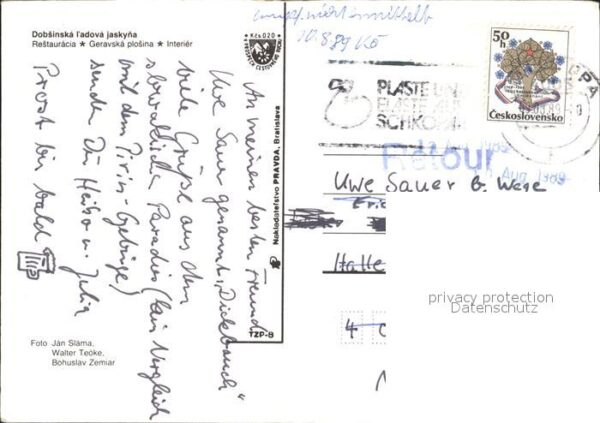 Dobšinská ľadová jaskyňa
Reštaurácia ★ Geravská plošina ★ Interiér
Kčs 0,20
An meinen besten Freund
Uwe Sauer genannt „Dickbauch“
viele Grüße aus dem
slowakischen Paradies (kein Vergleich
mit dem Pirin-Gebirge)
senden Dir Heiko u. Julia
Prost bis bald
Foto Ján Sláma,
Walter Teöke,
Bohuslav Zemiar
Nakladateľstvo PRAVDA, Bratislava
TZP-8
10.8.89
PLASTE UND
PLASTE AUS
SCHKOPAU
50 h
Československo
Retour
Aug 1989
Uwe Sauer b. Wege
Halle
4
privacy protection
Datenschutz